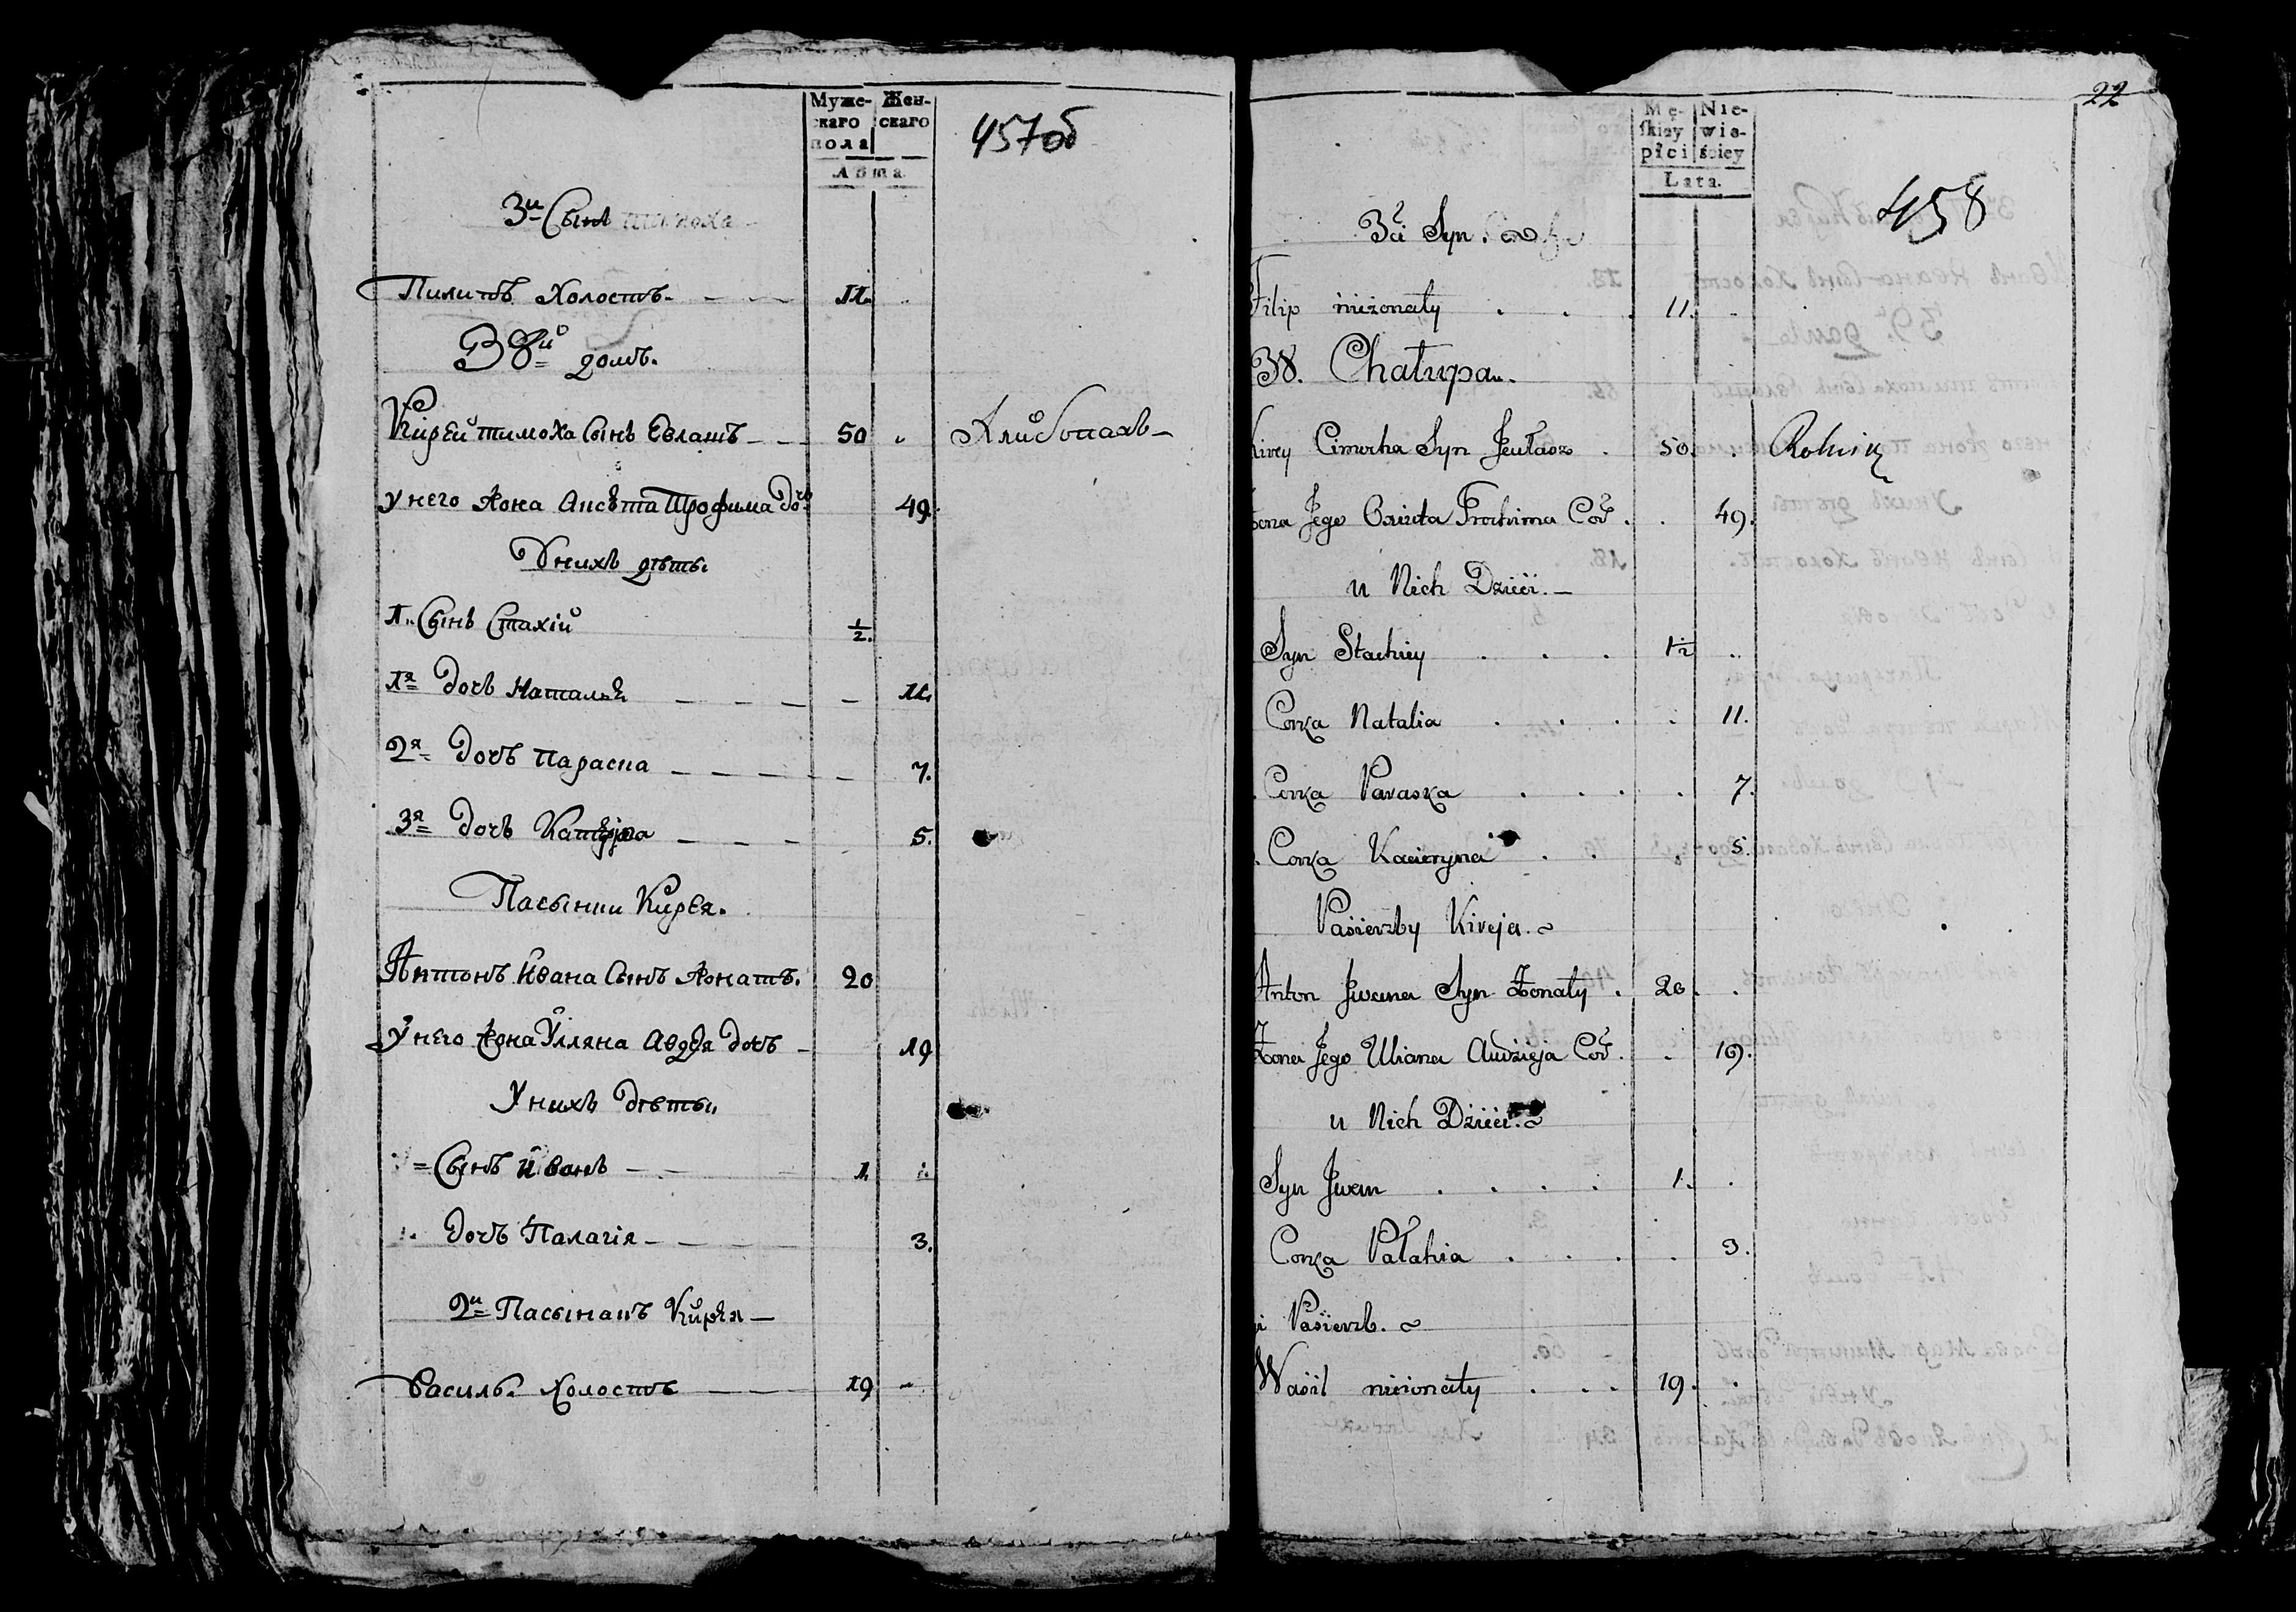 Муже-
скаго
пола
Жен-
скаго
Лѣта
457об
3й Сынъ
Пилипъ Холостъ. 11.
38й домъ.
Кирей тимоха Сынъ Евлашъ 50 Хлибопахъ
у него жона Аксѣта Трофима дочь 49.
У нихъ дѣти.
1. Сынъ Стахій 1/2.
1я дочъ Наталья 11.
2я дочъ параска 7.
3я дочъ Катерина 5.
Пасынки Кирея.
Антонъ Ивана Сынъ жонатъ. 20
У него жона Уляна Авдея дочъ 19
У нихъ дѣти
Сынъ Иванъ 1.
дочъ Палагія 3.
2й Пасынакъ Кирея
василь. Холостъ 19
22
Mę-
skiey
płci
Nie-
wie-
ściey
Lata.
458
3ci Syn.
Filip nieżonaty 11.
38. Chałupa.
Kirey Cimocha Syn Jeułasz 50. Rolnik
Żona Jego Oxieta Trochima Cor. 49.
u Nich Dzieci.
Syn Stachiey 1/2
Corka Natalia 11.
Corka Paraska 7.
Corka Kacieryna 5.
Pasierzby Kireja.
Anton Jwana Syn Żonaty 20.
Żona Jego Uliana Audzieja Cor. 19.
u Nich Dzieci.
Syn Jwan 1.
Corka Pałahia 3.
i Pasierzb.
Wasil nieżonaty 19.